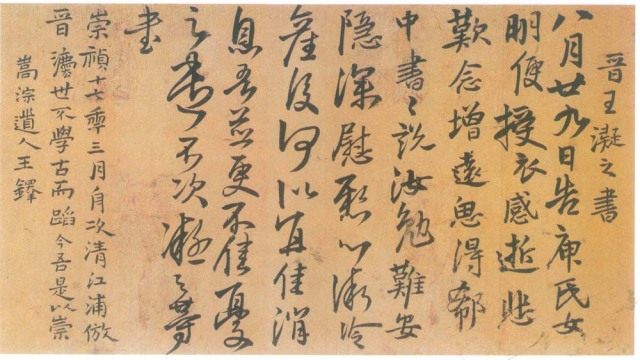 晉王凝之書
八月廿九日告庾氏女
明便授衣感逝悲
歎念增遠思得郗
中書〻說汝勉難安
隱深慰懸心漸冷
產後何似宜佳消
息吾並更不佳憂
之遣不次凝之等
書
崇禎十七年三月舟次清江浦倣
晉澆世不學古而蹈今吾是以崇
嵩淙遺人王鐸